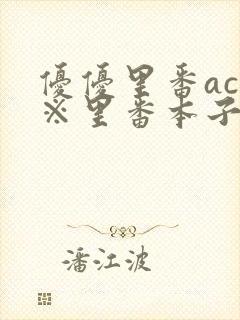 優優里番ac
※里番本子
潘江波